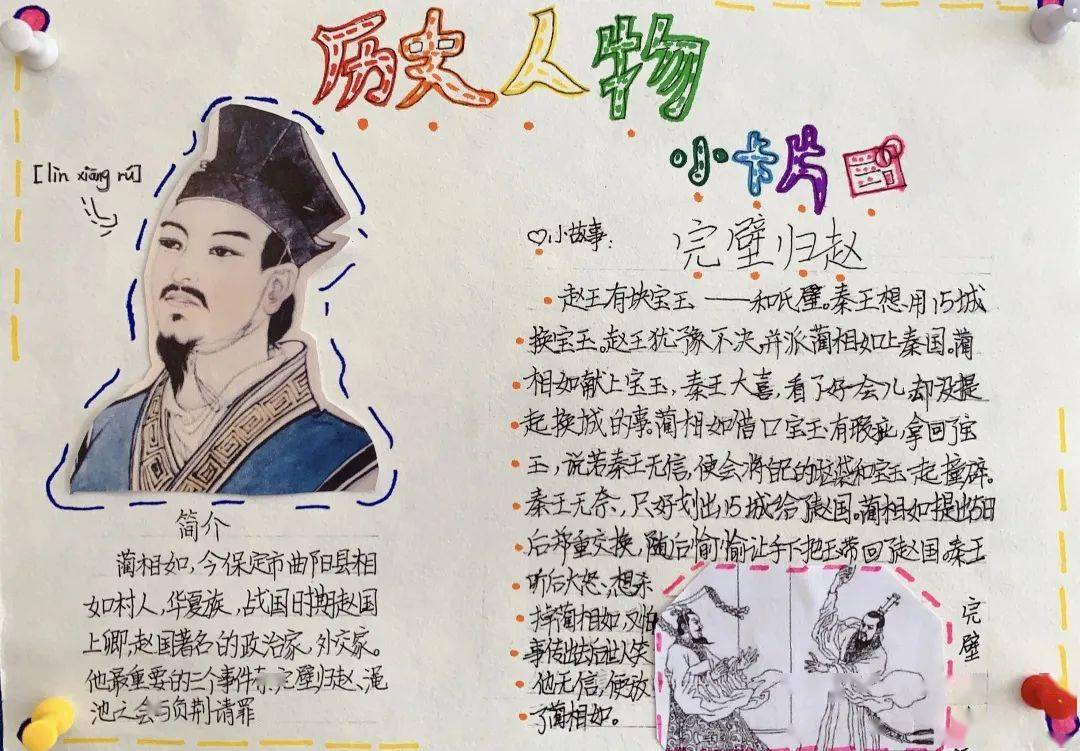 历史人物
小卡片
[lìn xiāng rú]
简介
蔺相如，今保定市曲阳县相
如村人，华夏族，战国时期赵国
上卿，赵国著名的政治家、外交家。
他最重要的三个事件 完璧归赵、渑
池之会与负荆请罪
小故事：
完璧归赵
赵王有块宝玉——和氏璧。秦王想用15城
换宝玉。赵王犹豫不决，并派蔺相如上秦国。蔺
相如献上宝玉，秦王大喜，看了好一会儿，却没提
起换城的事。蔺相如借口宝玉有瑕疵，拿回了宝
玉，说若秦王无信，便会将自己的 和宝玉一起撞碎。
秦王无奈，只好划出15城给了赵国。蔺相如提出5日
后郑重交换，随后偷偷让手下把玉带回了赵国。秦王
听后大怒、想杀
掉蔺相如，又怕
事传出去后世人笑
他无信，便放
了蔺相如。
完璧